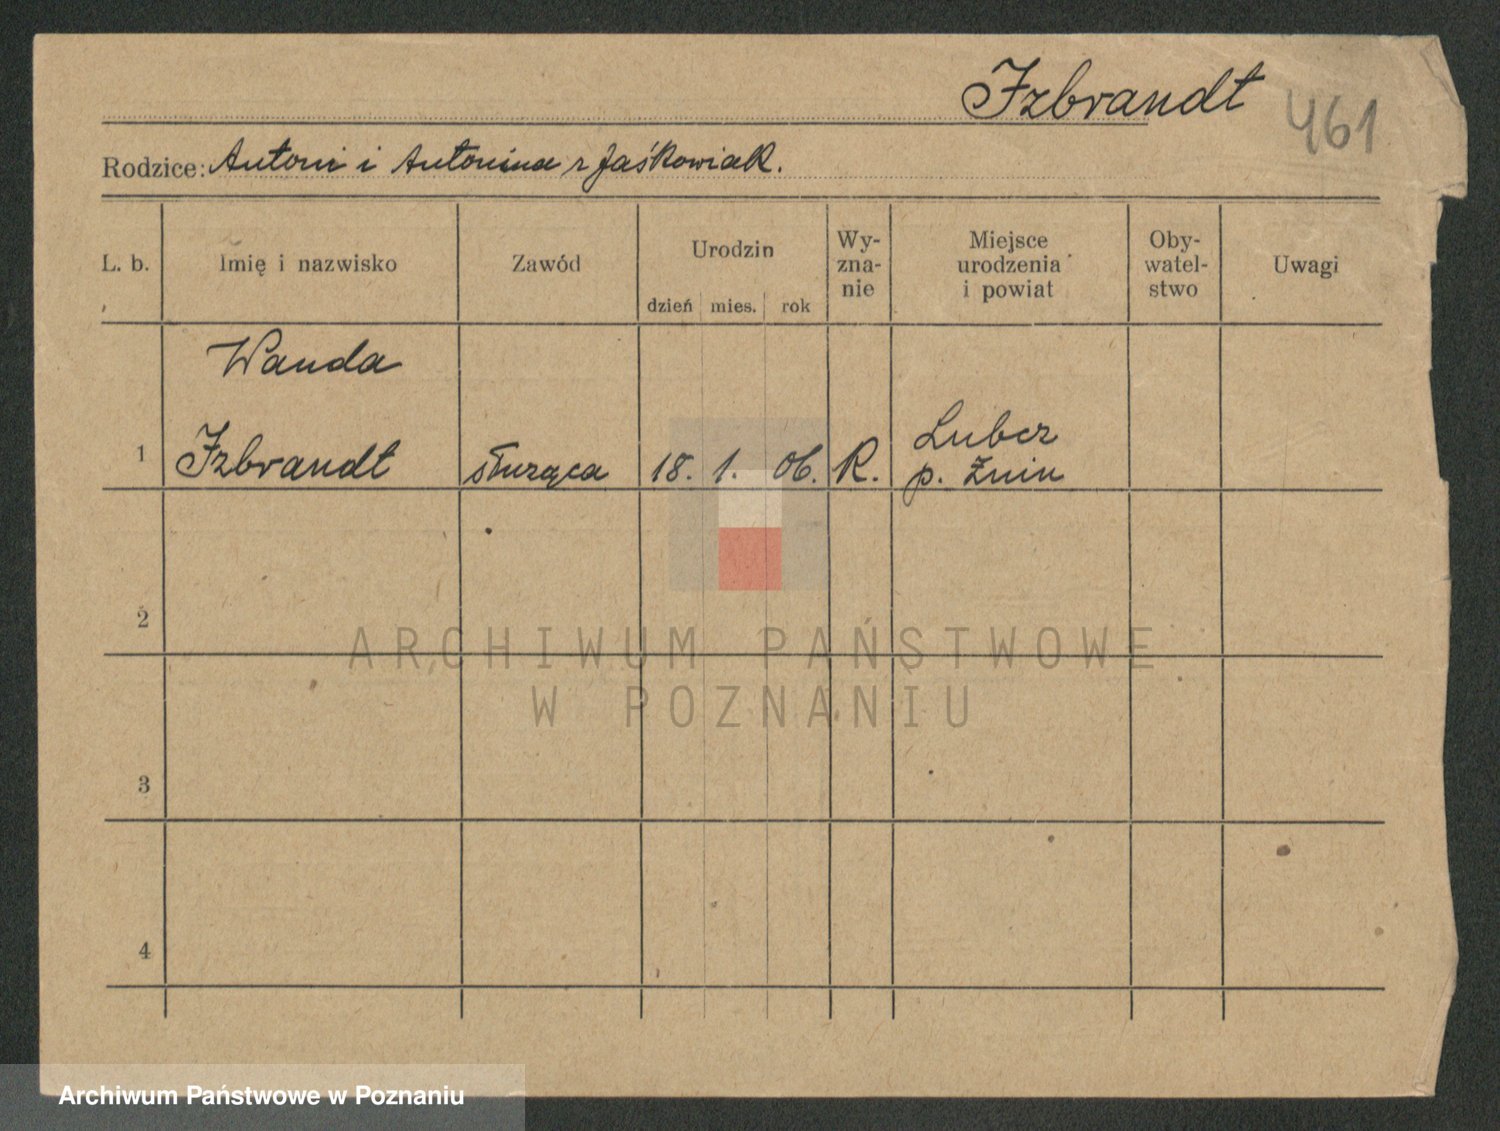 Izbrandt
461
Rodzice: Antoni i Antonina z Jaśkowiak.
L. b. Imię i nazwisko Zawód Urodzin dzień mies. rok Wy-zna-nie Miejsce urodzenia i powiat Oby-watel-stwo Uwagi
Wanda
1 Izbrandt służąca 18. 1. 06. R. Lubcz
p. Żnin
2
ARCHIWUM PAŃSTWOWE
W POZNANIU
3
4
Archiwum Państwowe w Poznaniu